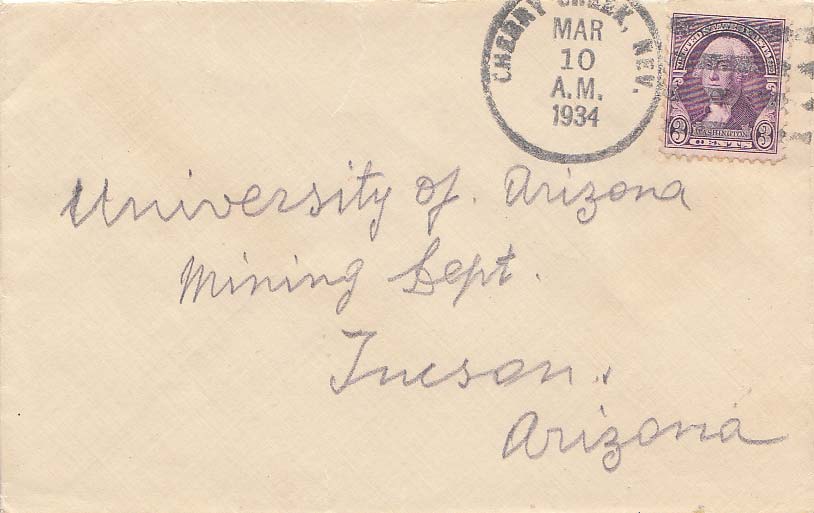 CHERRY CREEK, NEV.
MAR
10
A.M.
1934
UNITED STATES POSTAGE
3 WASHINGTON 3
CENTS
University of. Arizona
Mining Dept.
Tucson.
Arizona